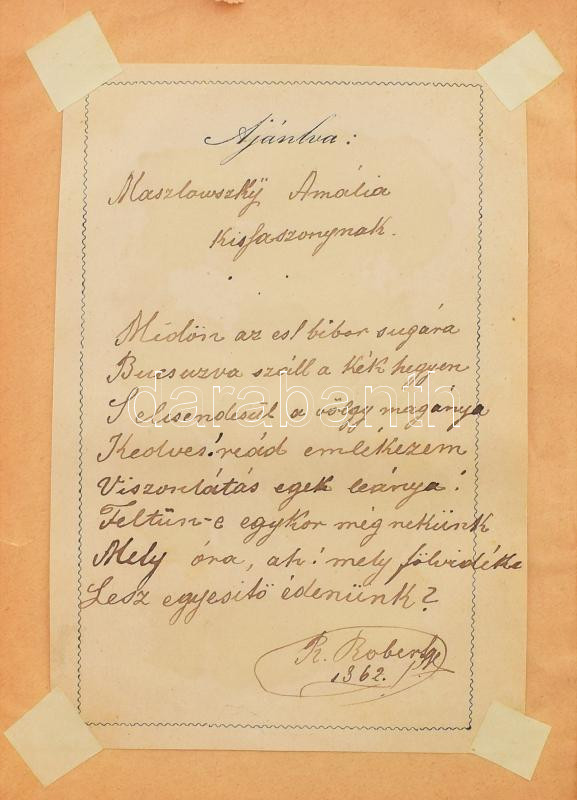 Ajánlva:
Maszlowszkÿ Amália
Kisfaszonynak.
Midőn az est bibor sugára
Bucsuzva száll a kék hegyen
S elcsendesűl a völgy magánya
Kedves! reád emlékezem
Viszonlátás egek leánya!
Feltűn-e egykor még nekünk
Mely óra, ah! mely fölvidék
Lesz egyesitő édenünk?
R. Robert
1862.
darabanth